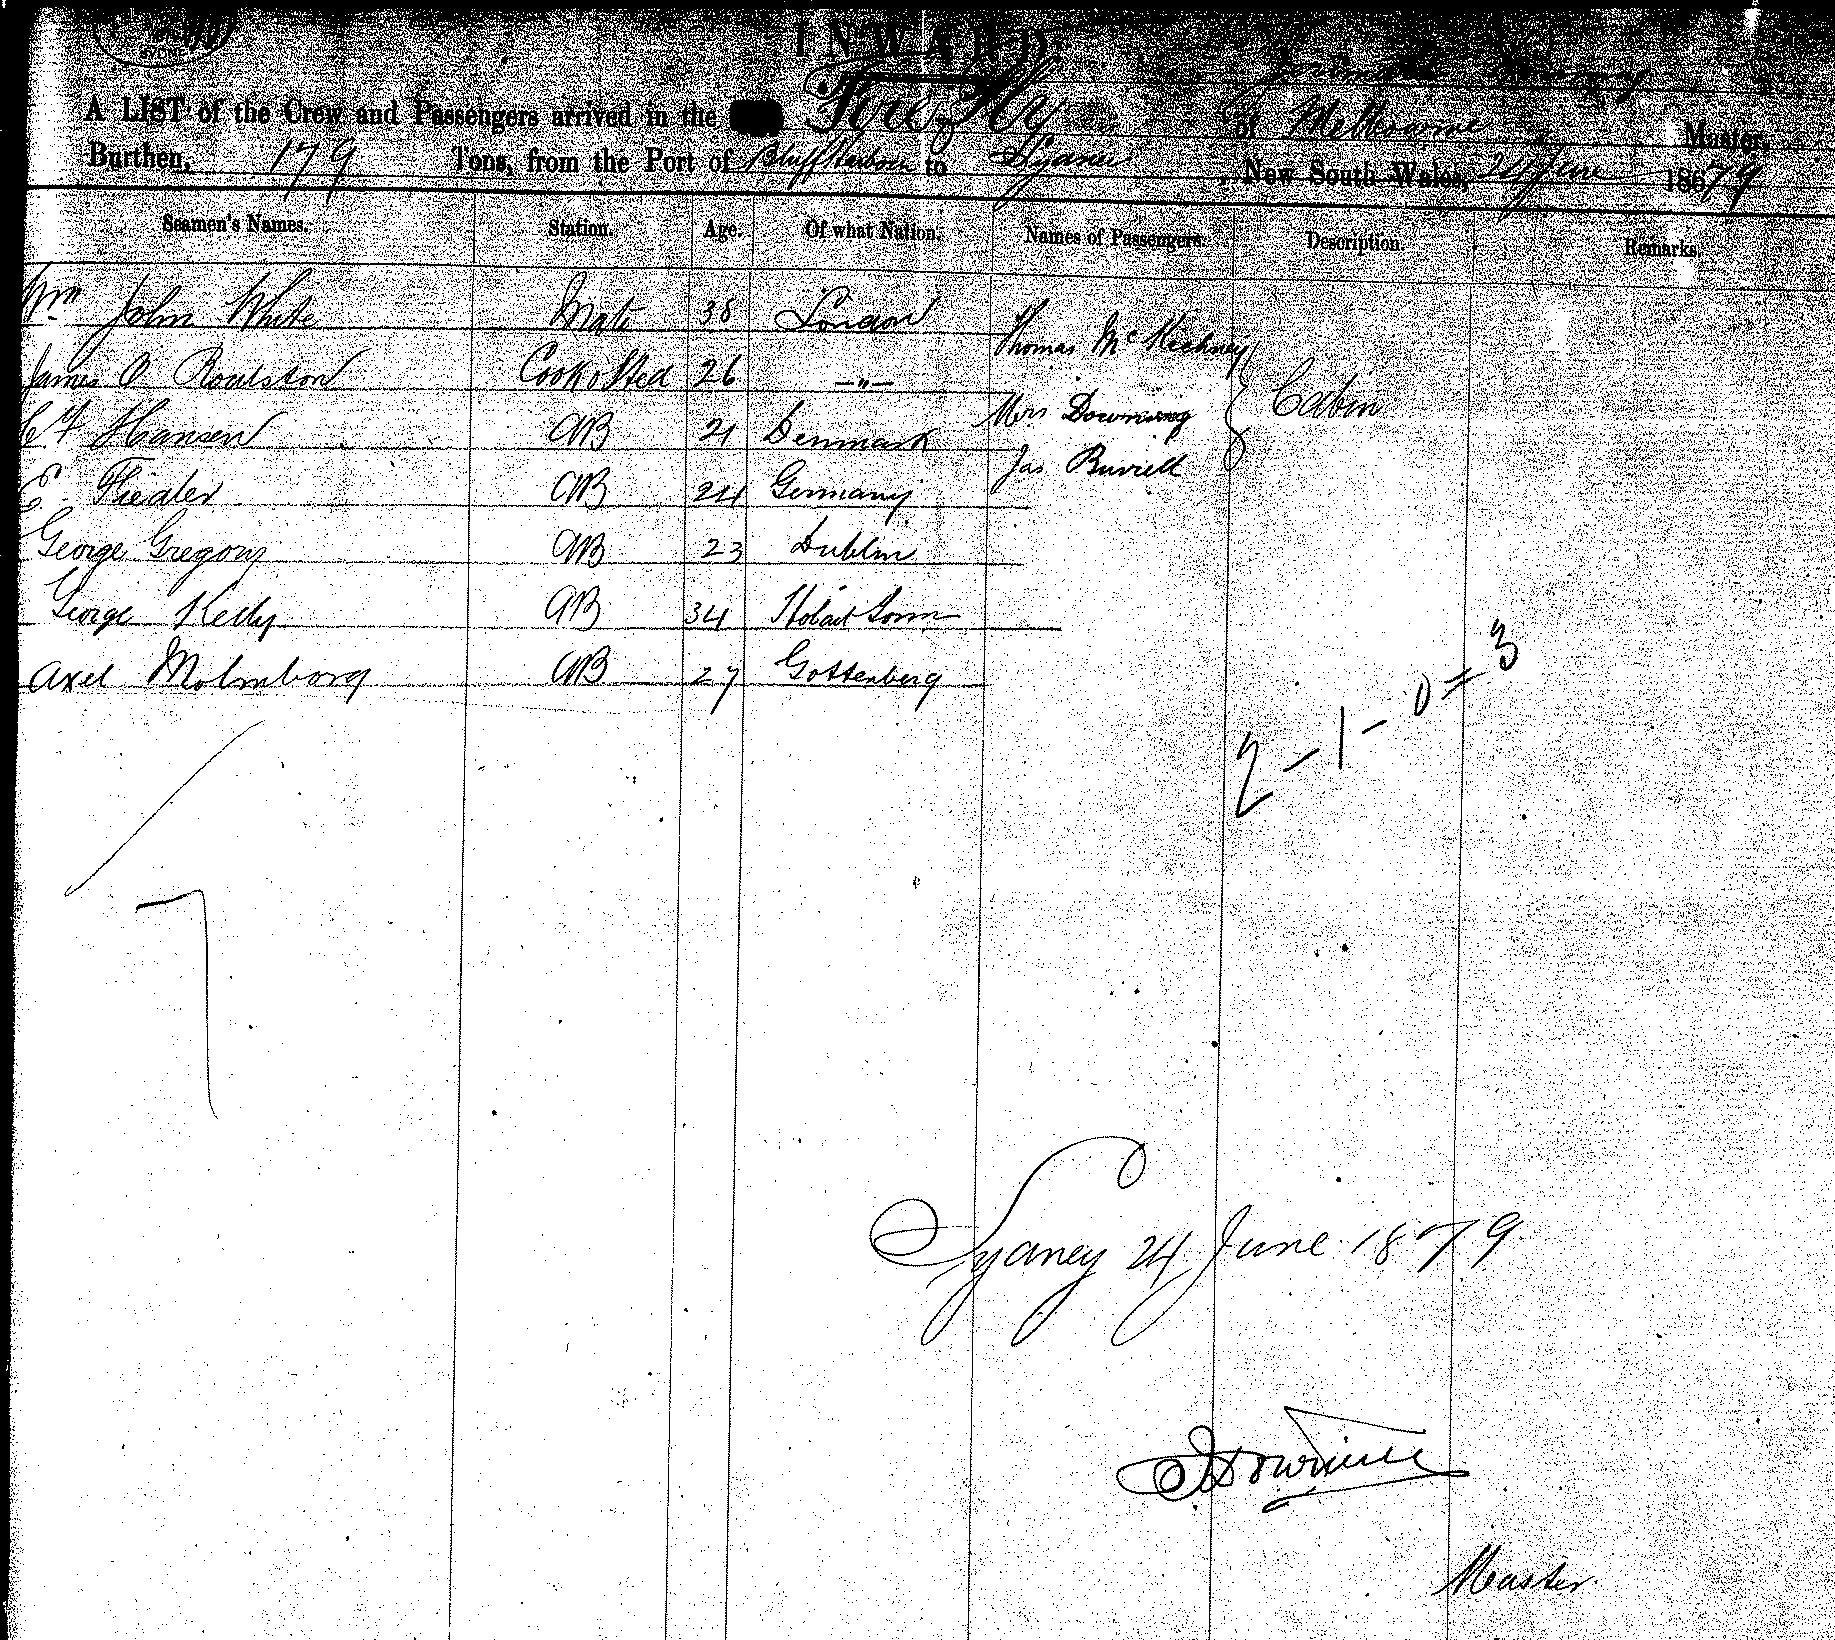 SYDNEY
INWARD.
A LIST of the Crew and Passengers arrived in the Fire Fly of Melbourne Master,
Burthen, 179 Tons, from the Port of Bluff Harbour to Sydney, New South Wales, 24 June 18679
Seamen's Names. Station. Age. Of what Nation. Names of Passengers. Description. Remarks.
Wm John White Mate 38 London
Thomas McKechney
James O Roulston Cook & Sted 26 —"—
Cabin
Hansen AB 21 Denmark Mrs Downing
Jas Burrell
E. Fiedler AB 24 Germany
George Gregory AB 23 Dublin
George Kelly AB 34 Hobart Town
Axel Molmborg AB 27 Gottenberg
2 - 1 - 0 = 3
7
Sydney 24 June 1879
Master